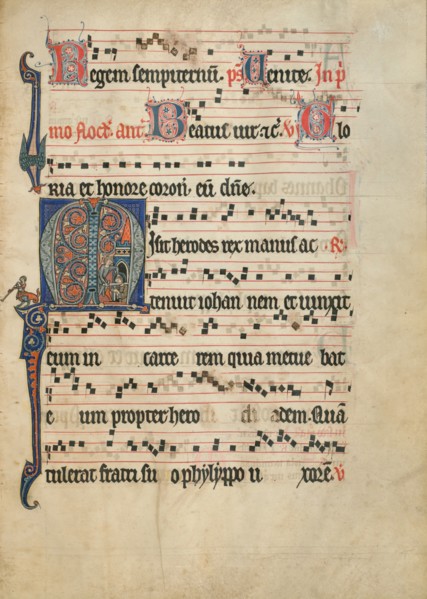 Regem sempiternū. ps Uenite. In p̄
mo noct̄. ant̄. Beatus uir. ⁊c̄. V Glo
ria et honore coron̄. eū dn̄e.
Misit herodes rex manus ac R.
tenuit iohan nem et uinxit
eum in carce rem quia metue bat
e um propter hero di adem. Quā
tulerat fratri su o phylyppo u xorē. V